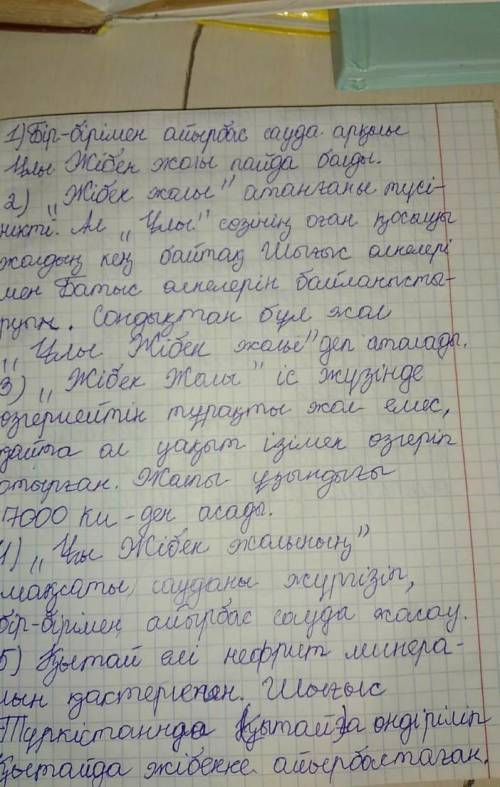 1) Бір-бірімен айырбас сауда арқылы
Ұлы Жібек жолы пайда болды.
2) „Жібек жолы" атанғаны түсі-
нікті. Ал „Ұлы" сөзінің оған қосылуы
жолдың кең байтақ Шығыс өлкелері
мен Батыс өлкелерін байланысты-
руы. Сондықтан бұл жол
„Ұлы Жібек жолы" деп аталады.
3) „Жібек Жолы" іс жүзінде
өзгермейтін тұрақты жол емес,
қайта ол уақыт ізімен өзгеріп
отырған. Жалпы ұзындығы
7000 км-ден асады.
4) „Ұлы Жібек жолының"
мақсаты сауданы жүргізіп,
бір-бірімен айырбас сауда жасау.
5) Қытай елі нефрит минера-
лын қастерлеген. Шығыс
Түркістанда (Қытайда) өндіріліп
Қытайда жібекке айырбасталған.